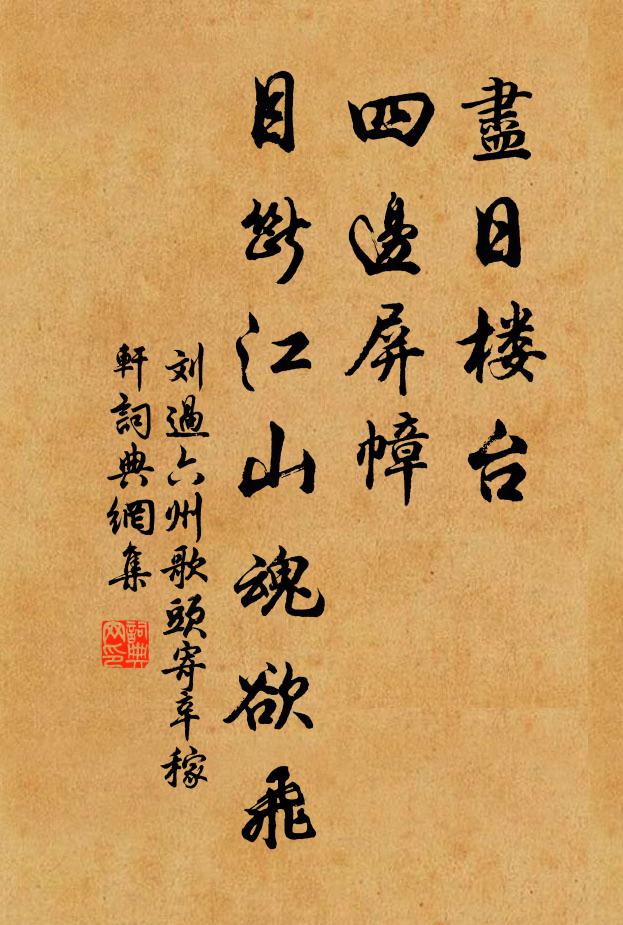 盡日楼台
四邊屏幛
目断江山魂欲飛
刘過六州歌頭寄辛稼
軒詞典網集
詞典
网印